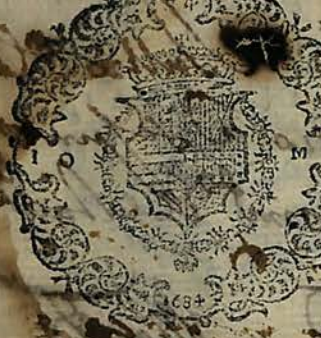 I O M
1684